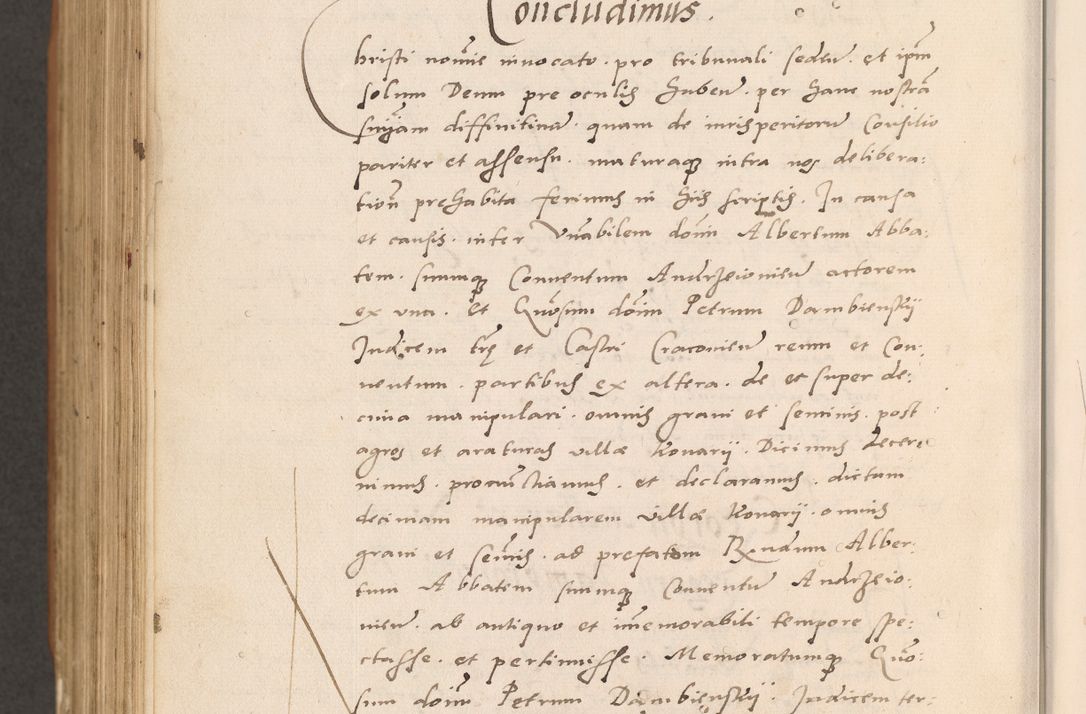 Concludimus.
Christi nomie invocato. pro tribunali seden. et ipm
solum Deum pre oculis haben. per hanc nostra
sniam diffinitiua. quam de iurisperitoru Consilio
pariter et assensu. maturaque intra nos delibera:
tion prehabita ferimus in hiis scriptis. In causa
et causis. inter Vnabilem dom Albertum Abba:
tem. suumque Conuentum Andrzeiouien actorem
ex vna. Et Gnosum dom Petrum Dambienskij
Judicem tre et Castri Cracouien reum et Con:
uentum. partibus ex altera. de et super de:
cima manipulari. omnis grani et seminis. post
agros et araturas villæ Konarij. Dicimus decer:
nimus. pronunctiamus. et declaramus. dictam
decimam manipularem villæ Konarij. omnis
grani et semis. ad prefatom Rndum Alber:
tum Abbatem suumque Conuentu Andrzeio:
uien. ab antiquo et immemorabili tempore spe:
ctasse. et pertinuisse. Memoratumque Gno:
sum dom Petrum Dambienskij. Judicem ter: